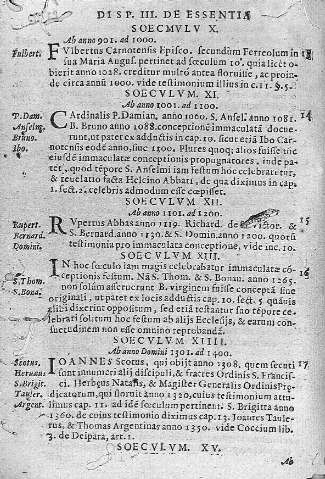 DISP. III. DE ESSENTIA
SOECMVLV X.
Ab anno 901. ad 1000.
Fulbert. FVlbertus Carnotensis Episco. secundùm Ferreolum in 13
sua Maria August. pertinet ad sæculum 10. quia licèt o-
bierit anno 1028. creditur multò antea floruisse, ac proin-
de circa annũ 1000. vide testimonium illius in c. 11. §. 5.
SOECVLVM XI.
Ab anno 1001. ad 1100.
P. Dam. CArdinalis P. Damian, anno 1060. S. Ansel. anno 1081. 14
Anselm. B. Bruno anno 1088. conceptionē immaculatā docue-
Bruno. runt, ut patet ex addictis in cap. 10. sicut etiā Ibo Car-
Ibo. notensis eodē anno, sinc 1100. Plures quoq; alios fuisse tūc
eiusdē immaculatæ conceptionis propugnatores, inde pa-
tet, quod tēpore S. Anselmi iam festum hoc celebratetur,
& revelatio facta Helcino Abbati, de qua diximus in cap.
1. sect. 2. celebris admodum esse cœpisset.
SOECVLVM XII.
Ab anno 1101. ad 1200.
Rupert. RVpertus Abbas anno 1119. Richard. de victor. & 15
Bernard. S. Bernard. anno 1130. & S. Domin. anno 1200. quorũ
Domini. testimonia pro immaculata conceptione, vide inc. 10.
SOECVLVM XIII.
IN hoc sæculo iam magis celebrabatur immaculatæ cō- 16
S. Thom. ceptionis festum. Nā S. Thom. & S. Bonau. anno 1265.
S. Bona. non solùm asseruerunt B. virginem fuisse conceptā sine
originali, ut patet ex locis addictis cap. 10. sect. 5. quāvis
alibi dixerint oppositum, sed etiā testantur suo tēpore ce-
lebrati solitum hoc festum ab alijs Ecclesijs, & earum con-
suetudinem non esse omnino reprobandā.
SOECVLVM XIIII.
Ab anno Domini 1301. ad 1400.
Scotus. IOANNES Scotus, qui obijt anno 1308, quem secuti 17
Heruæus. sunt innumerabiles discipuli, & fratres Ordinis S. Francis-
S. Brigit. ci. Herbeus Natalis, & Magister Generalis Ordinis Præ-
Tauler. dicatorum, qui floruit anno 1320. cuius testimonium attu-
Argent. limus cap. 11. ad idē sæculum pertinent. S. Brigitta anno
1360. de cuius testimonio diximus cap. 13. Ioannes Taule-
rus, & Thomas Argentinay anno 1350. vide Coccium lib.
3. de Deipara, art. 1.
SOECVLVM. XV.
Ab